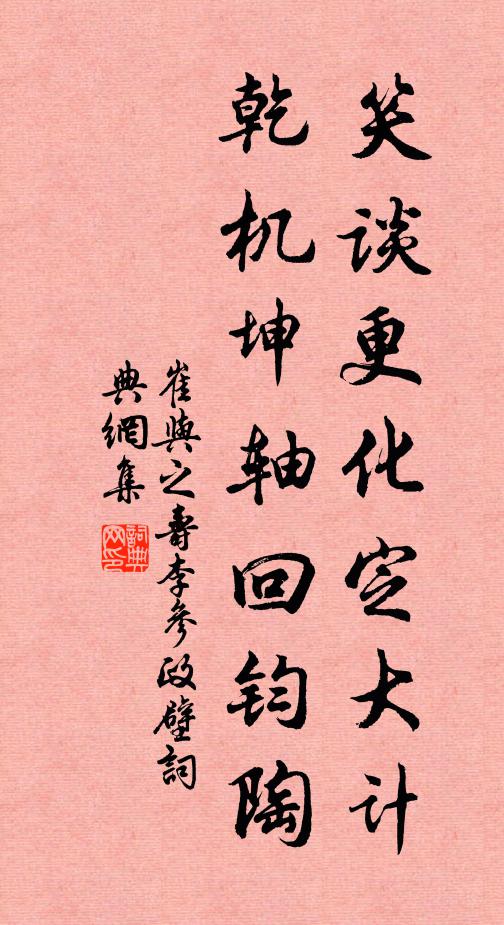 笑谈更化定大计
乾机坤轴回钧陶
崔與之壽李參政壁詞
典網集
詞典网印